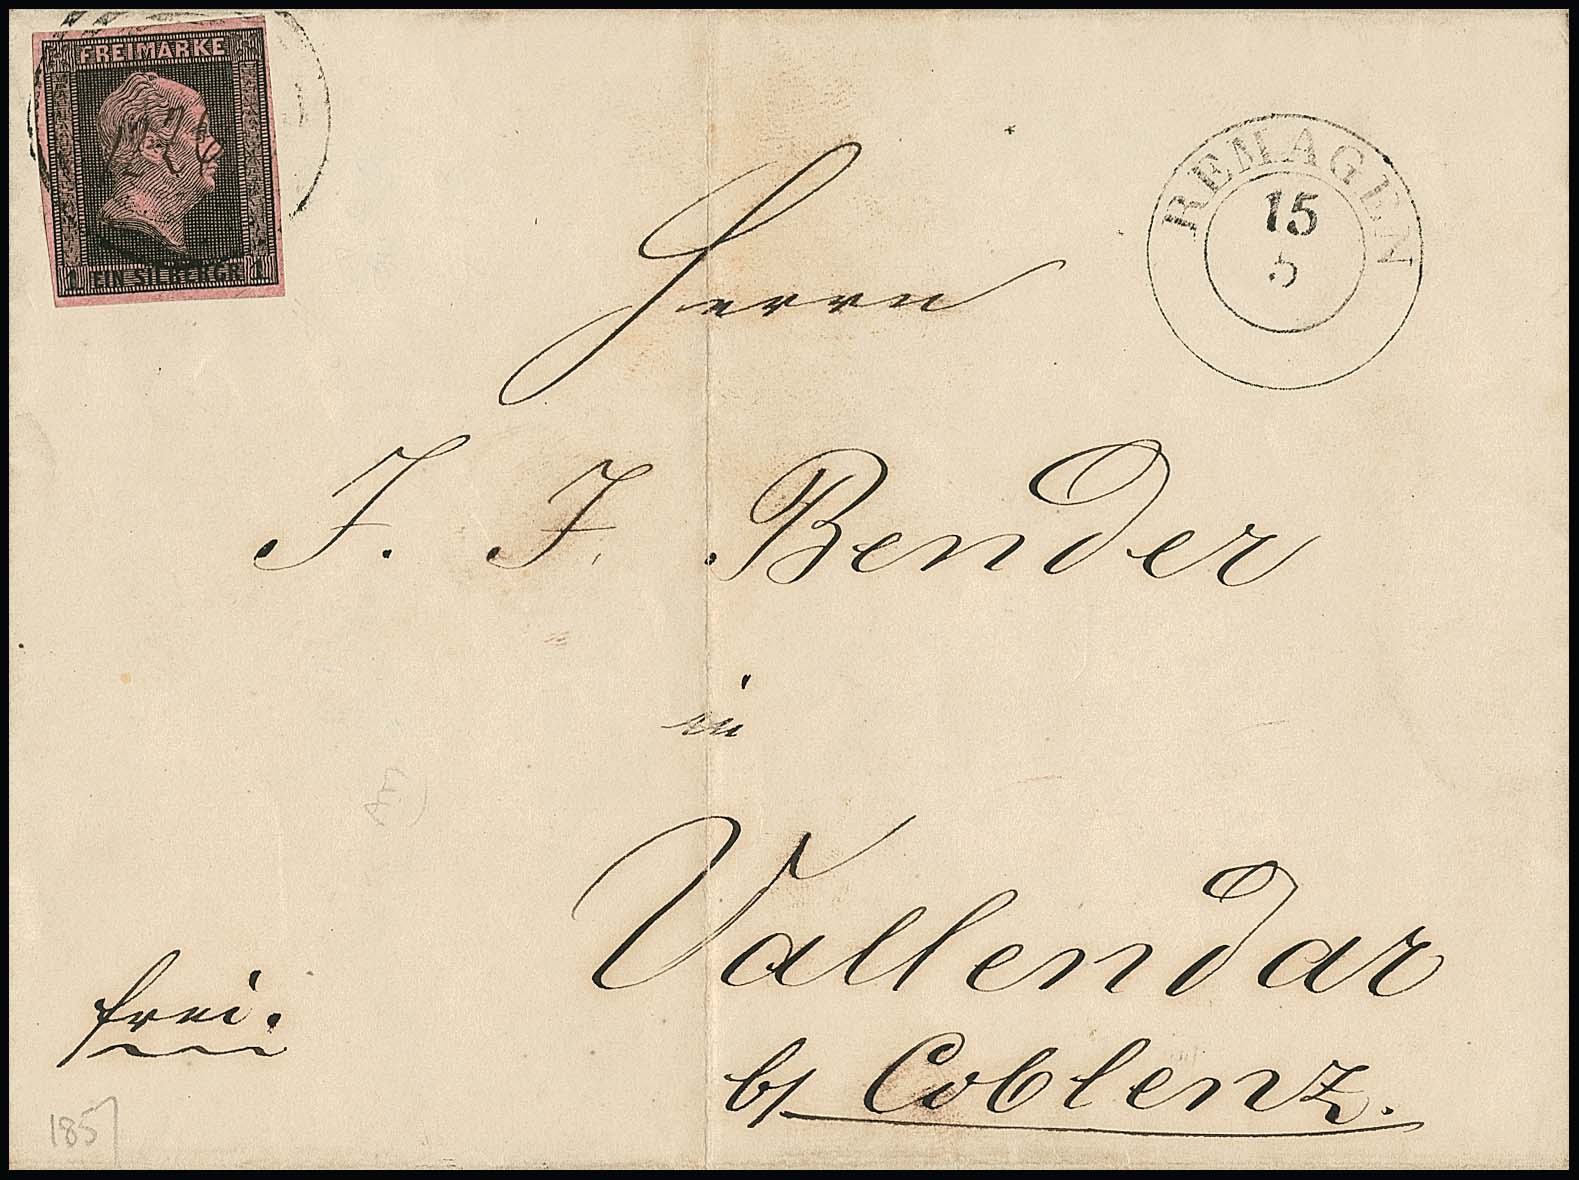 FREIMARKE
1 EIN SILBERGR. 1
REMAGEN
15
5
Herrn
J. J. Bender
in
Vallendar
b/ Coblenz.
frei.
1857